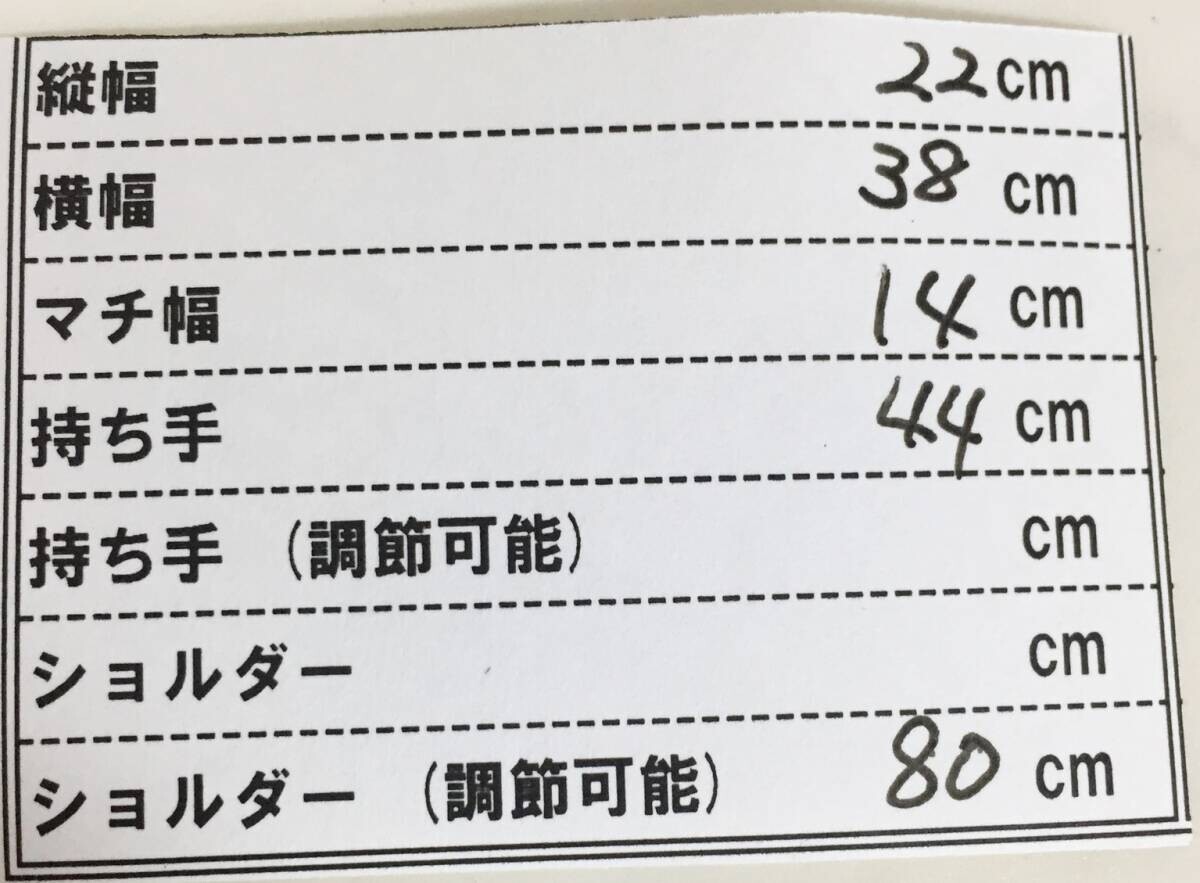 縦幅 22cm
横幅 38 cm
マチ幅 14 cm
持ち手 44 cm
持ち手 (調節可能) cm
ショルダー cm
ショルダー (調節可能) 80 cm